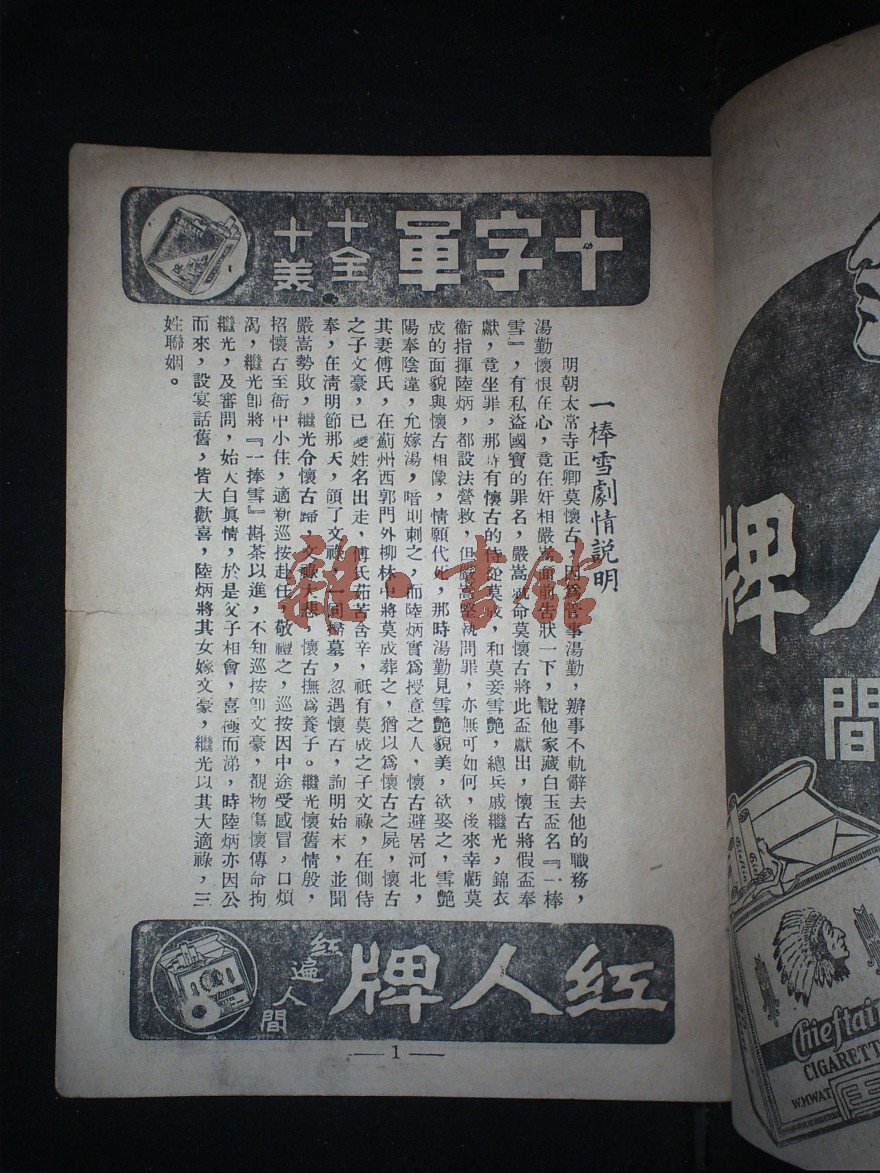 十字軍
十全
十美
一棒雪劇情説明
明朝太常寺正卿莫懷古，因爲管事湯勤，辦事不軌辭去他的職務，
湯勤懷恨在心，竟在奸相嚴嵩面前告狀一下，說他家藏白玉盃名『一棒
雪』，有私盜國寶的罪名，嚴嵩就命莫懷古將此盃獻出，懷古將假盃奉
獻，竟坐罪，那時有懷古的侍從莫成，和莫妾雪艷，總兵戚繼光，錦衣
衞指揮陸炳，都設法營救，但嚴嵩堅執問罪，亦無可如何，後來幸虧莫
成的面貌與懷古相像，情願代死，那時湯勤見雪艷貌美，欲娶之，雪艷
陽奉陰違，允嫁湯，暗則刺之，而陸炳實爲授意之人，懷古避居河北，
其妻傅氏，在薊州西郭門外柳林中將莫成葬之，猶以爲懷古之屍，懷古
之子文豪，已變姓名出走，傅氏茹苦含辛，祇有莫成之子文祿，在側侍
奉，在淸明節那天，領了文祿，一同掃墓，忽遇懷古，詢明始末，並聞
嚴嵩勢敗，繼光令懷古歸，文祿大悲，懷古撫爲養子。繼光懷舊情殷，
招懷古至衙中小住，適新巡按赴任，敬禮之，巡按因中途受感冒，口煩
渴，繼光卽將『一捧雪』斟茶以進，不知巡按卽文豪，覩物傷懷傳命拘
繼光，及審問，始大白眞情，於是父子相會，喜極而涕，時陸炳亦因公
而來，設宴話舊，皆大歡喜，陸炳將其女嫁文豪，繼光以其大適祿，三
姓聯姻。
紅人牌
紅遍人間
— 1 —
雜·書館
人牌
間
Chieftain
CIGARETT
W.MWAT